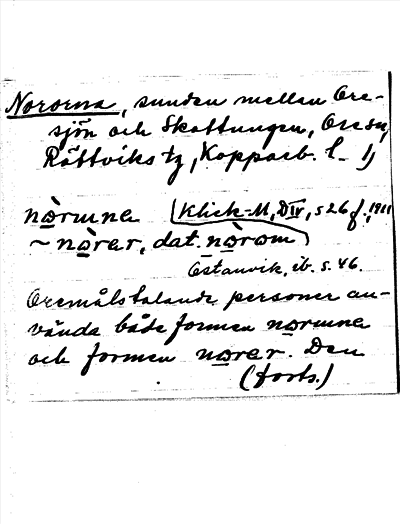 Nororna, sunden mellan Ore-
sjön och Skattungen, Ore sn,
Rättviks tg, Kopparb. l.
nòrunna (Klick-M, DIV, s 26 f., 1911
~ nòrar, dat. nòrom
Östanvik, ib. s. 46.
Oremålstalande personer an-
vända både formen norunna
och formen norar. Den
(forts.)